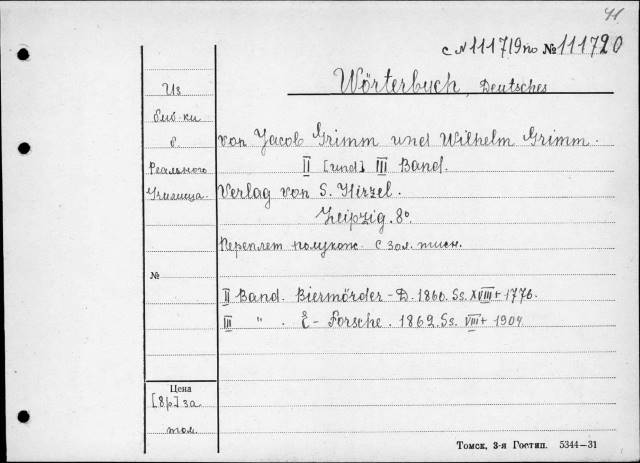 41
с №111719 по №111720
Wörterbuch, Deutsches
Из
биб-ки
б.
Реального
Училища.
von Jacob Grimm und Wilhelm Grimm.
II [und] III Band.
Verlag von S. Hirzel.
Leipzig. 8°
Переплет полукож. с зол. тисн.
№
II Band. Biermörder - D. 1860. Ss. XVIII + 1776.
III " . E - Forsche. 1862. Ss. VIII + 1904
Цена
[8р] за
том.
Томск, 3-я Гостип. 5344—31